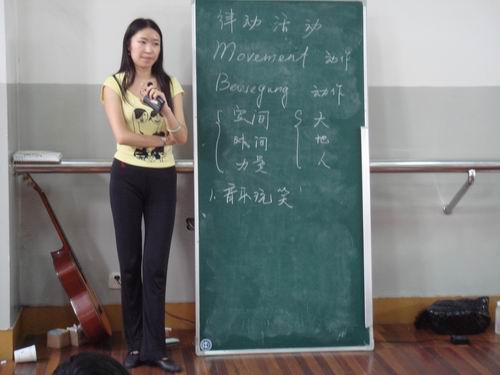 律动活动
Movement 动作
Bewegung 动作
空间 大
时间 地
力量 人
1. 音乐玩笑